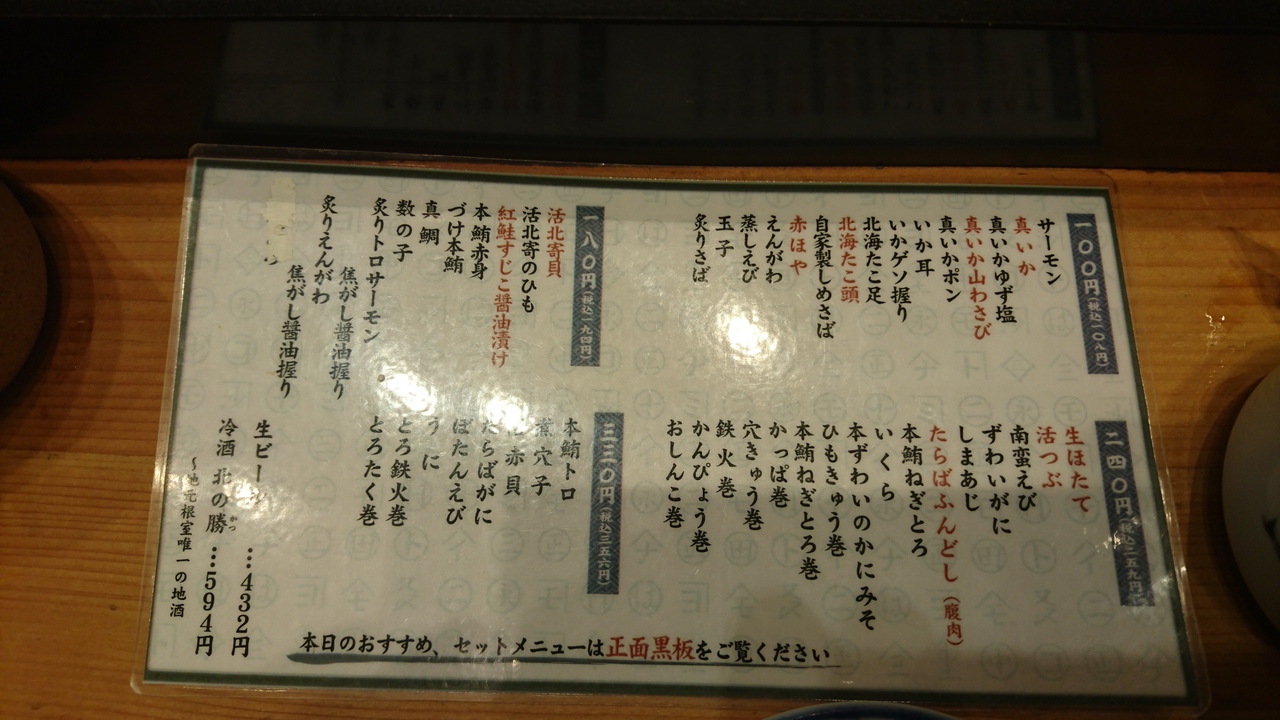 一〇〇円(税込一〇八円)
サーモン
真いか
真いかゆず塩
真いか山わさび
真いかポン
いか耳
いかゲソ握り
北海たこ足
北海たこ頭
自家製しめさば
赤ほや
えんがわ
蒸しえび
玉子
炙りさば
一八〇円(税込一九四円)
活北寄貝
活北寄のひも
紅鮭すじこ醤油漬け
本鮪赤身
づけ本鮪
真鯛
数の子
炙りトロサーモン
焦がし醤油握り
炙りえんがわ
焦がし醤油握り
二四〇円(税込二五九円)
生ほたて
活つぶ
南蛮えび
ずわいがに
しまあじ
たらばふんどし(腹肉)
本鮪ねぎとろ
いくら
本ずわいのかにみそ
ひもきゅう巻
本鮪ねぎとろ巻
かっぱ巻
穴きゅう巻
鉄火巻
かんぴょう巻
おしんこ巻
三三〇円(税込三五六円)
本鮪トロ
煮穴子
赤貝
たらばがに
ぼたんえび
うに
とろ鉄火巻
とろたく巻
生ビール…432円
冷酒 北の勝…594円
かつ
~地元根室唯一の地酒
本日のおすすめ、セットメニューは正面黒板をご覧ください